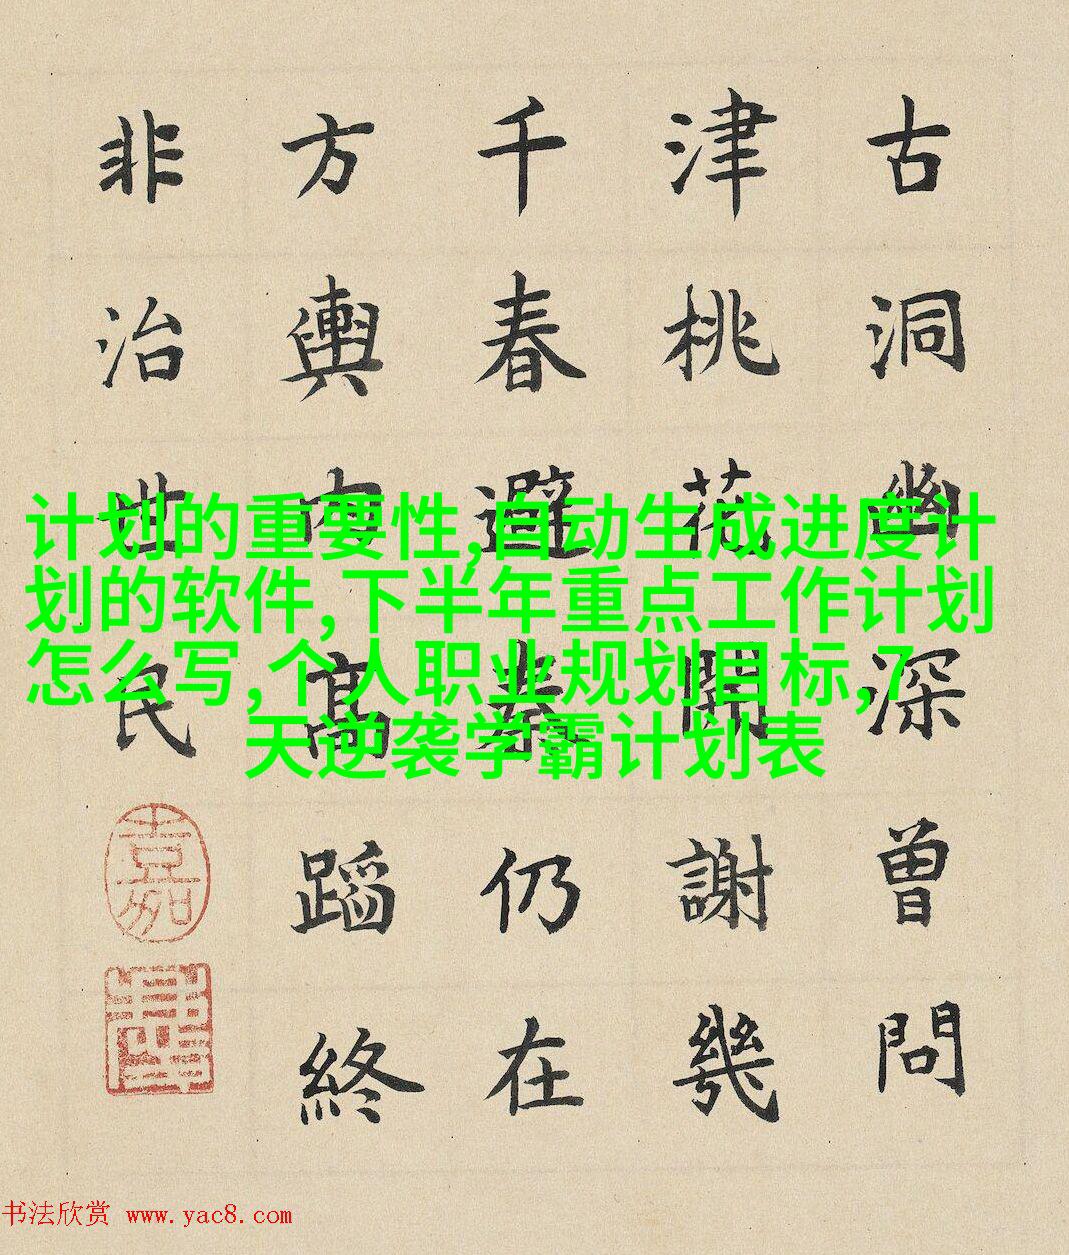 古洞幽深曾問
津桃花開謝幾
千春避秦仍在
方輿内高蹈終
非治世民
计划的重要性,自动生成进度计
划的软件,下半年重点工作计划
怎么写,个人职业规划目标,7
天逆袭学霸计划表
书法欣赏 www.yac8.com